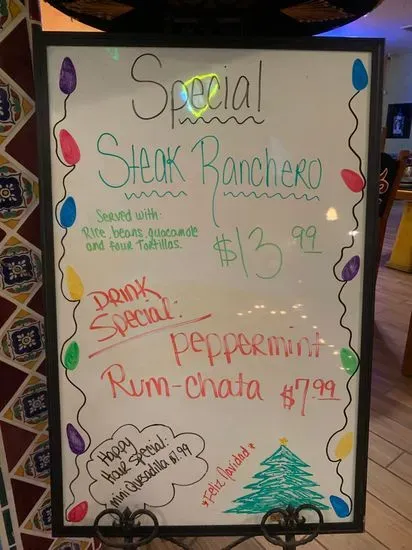 Special
Steak Ranchero
Served with:
Rice, beans, guacamole
and four Tortillas.
$13.99
Drink
Special:
Peppermint
Rum-chata $7.99
Happy
Hour Special:
mini Quesadilla $1.99
*Feliz Navidad*